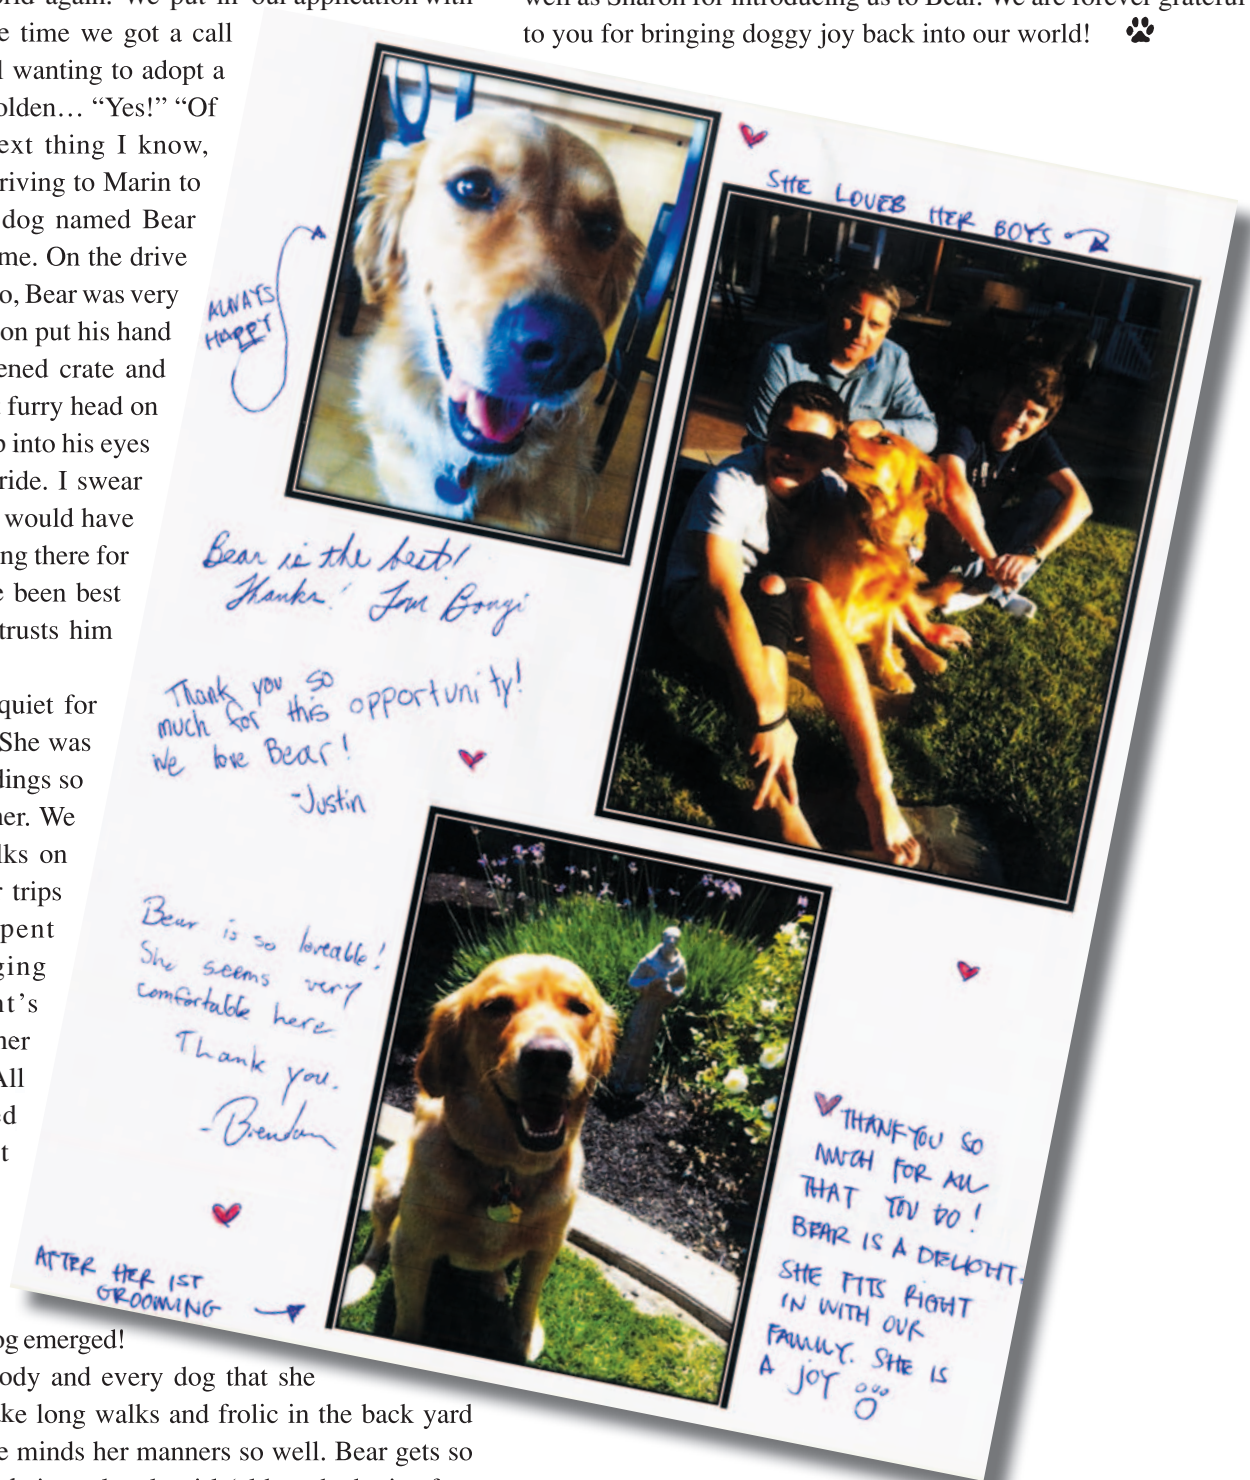 orld again. We put in our application with
e time we got a call
l wanting to adopt a
olden… “Yes!” “Of
ext thing I know,
riving to Marin to
dog named Bear
me. On the drive
o, Bear was very
on put his hand
ened crate and
furry head on
p into his eyes
ride. I swear
would have
ng there for
e been best
trusts him
quiet for
She was
dings so
her. We
lks on
r trips
pent
ging
nt’s
her
All
ed
t
og emerged!
ody and every dog that she
ke long walks and frolic in the back yard
e minds her manners so well. Bear gets so
well as Sharon for introducing us to Bear. We are forever grateful
to you for bringing doggy joy back into our world!
SHE LOVES HER BOYS
ALWAYS
HAPPY
Bear is the best!
Thanks! Tom Bongi
Thank you so
much for this opportunity!
We love Bear!
-Justin
Bear is so loveable!
She seems very
comfortable here
Thank you.
-Brendan
AFTER HER 1ST
GROOMING
THANK YOU SO
MUCH FOR ALL
THAT YOU DO!
BEAR IS A DELIGHT.
SHE FITS RIGHT
IN WITH OUR
FAMILY. SHE IS
A JOY